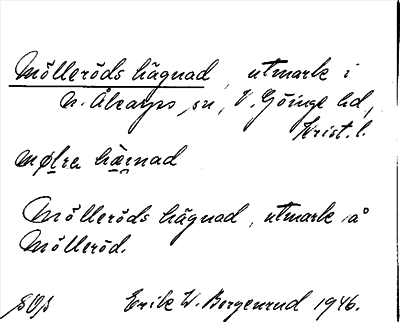 Mölleröds hägnad, utmark i
N. Åkarps sn, V. Göinge hd,
Krist. l.
mølrɛ hæ̱nad
Mölleröds hägnad, utmark å
Mölleröd.
Erik W. Bergenrud 1946.